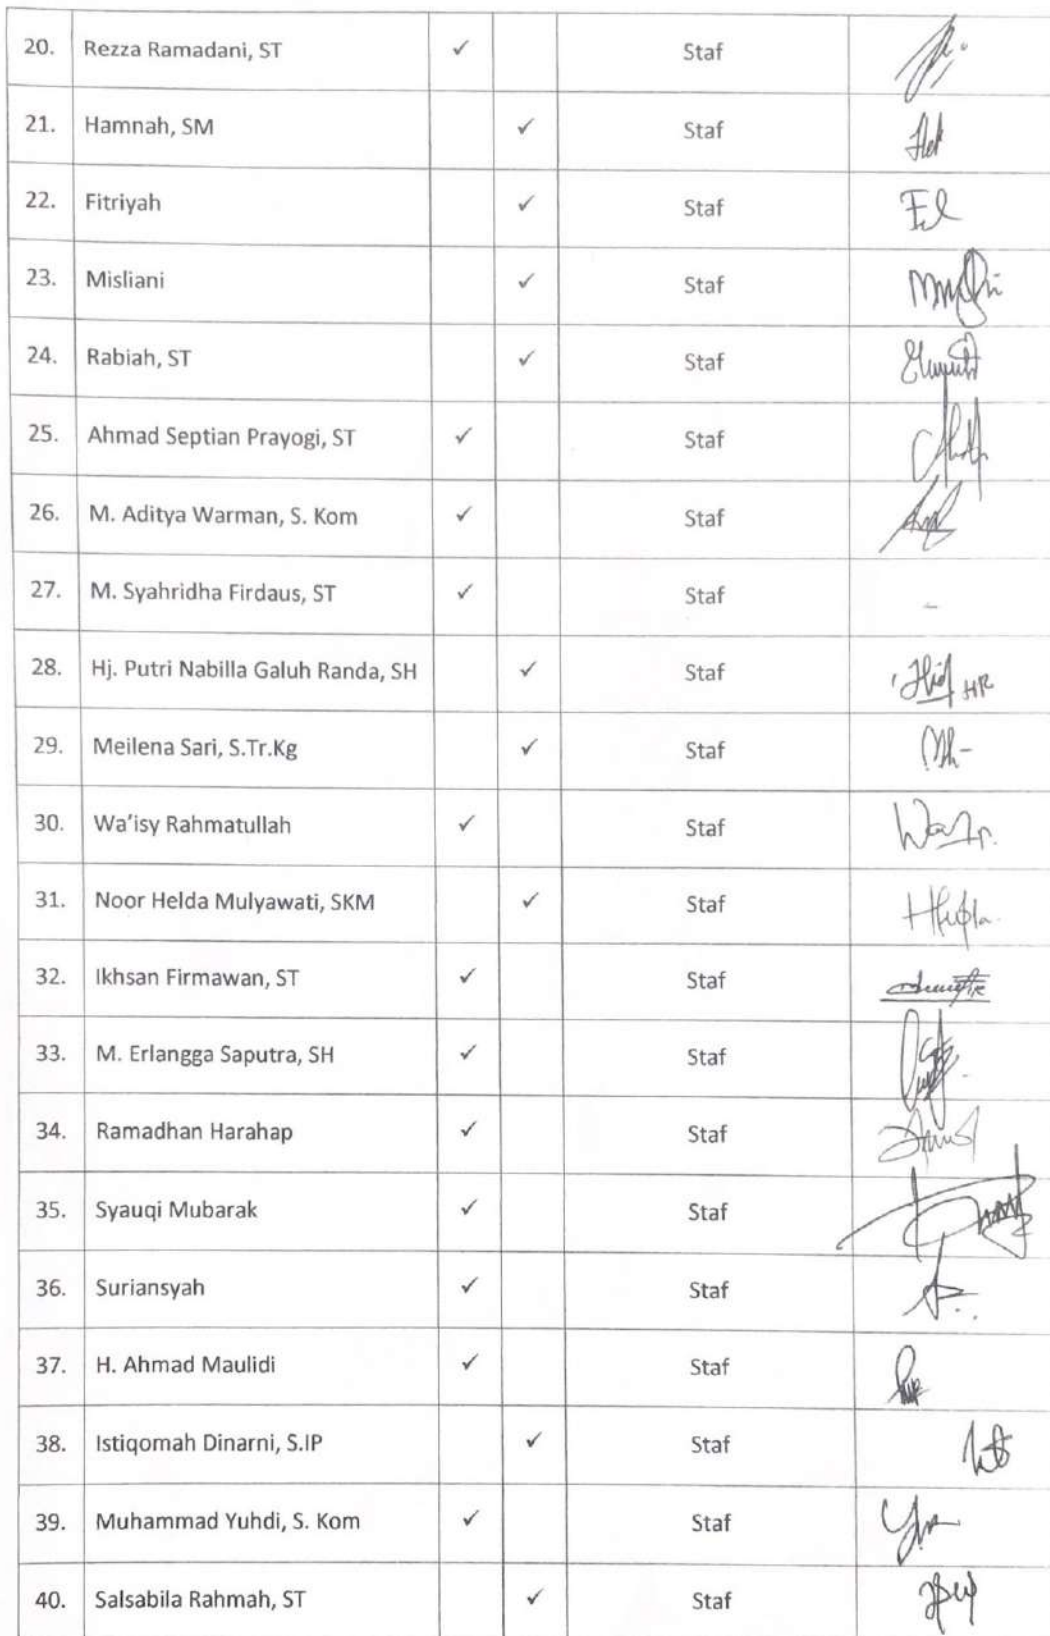 20. Rezza Ramadani, ST ✓ Staf
21. Hamnah, SM ✓ Staf
22. Fitriyah ✓ Staf
23. Misliani ✓ Staf
24. Rabiah, ST ✓ Staf
25. Ahmad Septian Prayogi, ST ✓ Staf
26. M. Aditya Warman, S. Kom ✓ Staf
27. M. Syahridha Firdaus, ST ✓ Staf -
28. Hj. Putri Nabilla Galuh Randa, SH ✓ Staf HR
29. Meilena Sari, S.Tr.Kg ✓ Staf
30. Wa'isy Rahmatullah ✓ Staf
31. Noor Helda Mulyawati, SKM ✓ Staf
32. Ikhsan Firmawan, ST ✓ Staf
33. M. Erlangga Saputra, SH ✓ Staf
34. Ramadhan Harahap ✓ Staf
35. Syauqi Mubarak ✓ Staf
36. Suriansyah ✓ Staf
37. H. Ahmad Maulidi ✓ Staf
38. Istiqomah Dinarni, S.IP ✓ Staf
39. Muhammad Yuhdi, S. Kom ✓ Staf
40. Salsabila Rahmah, ST ✓ Staf